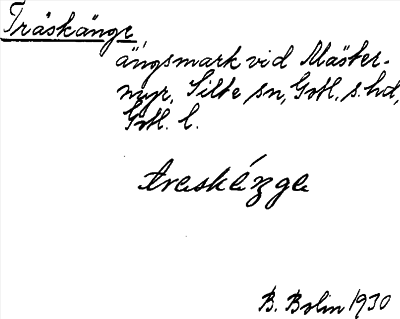 Träskänge
ängsmark vid Mäster-
myr, Silte sn, Gotl. s. hd,
Gotl. l.
träskä́ŋgə
B. Bolin 1930